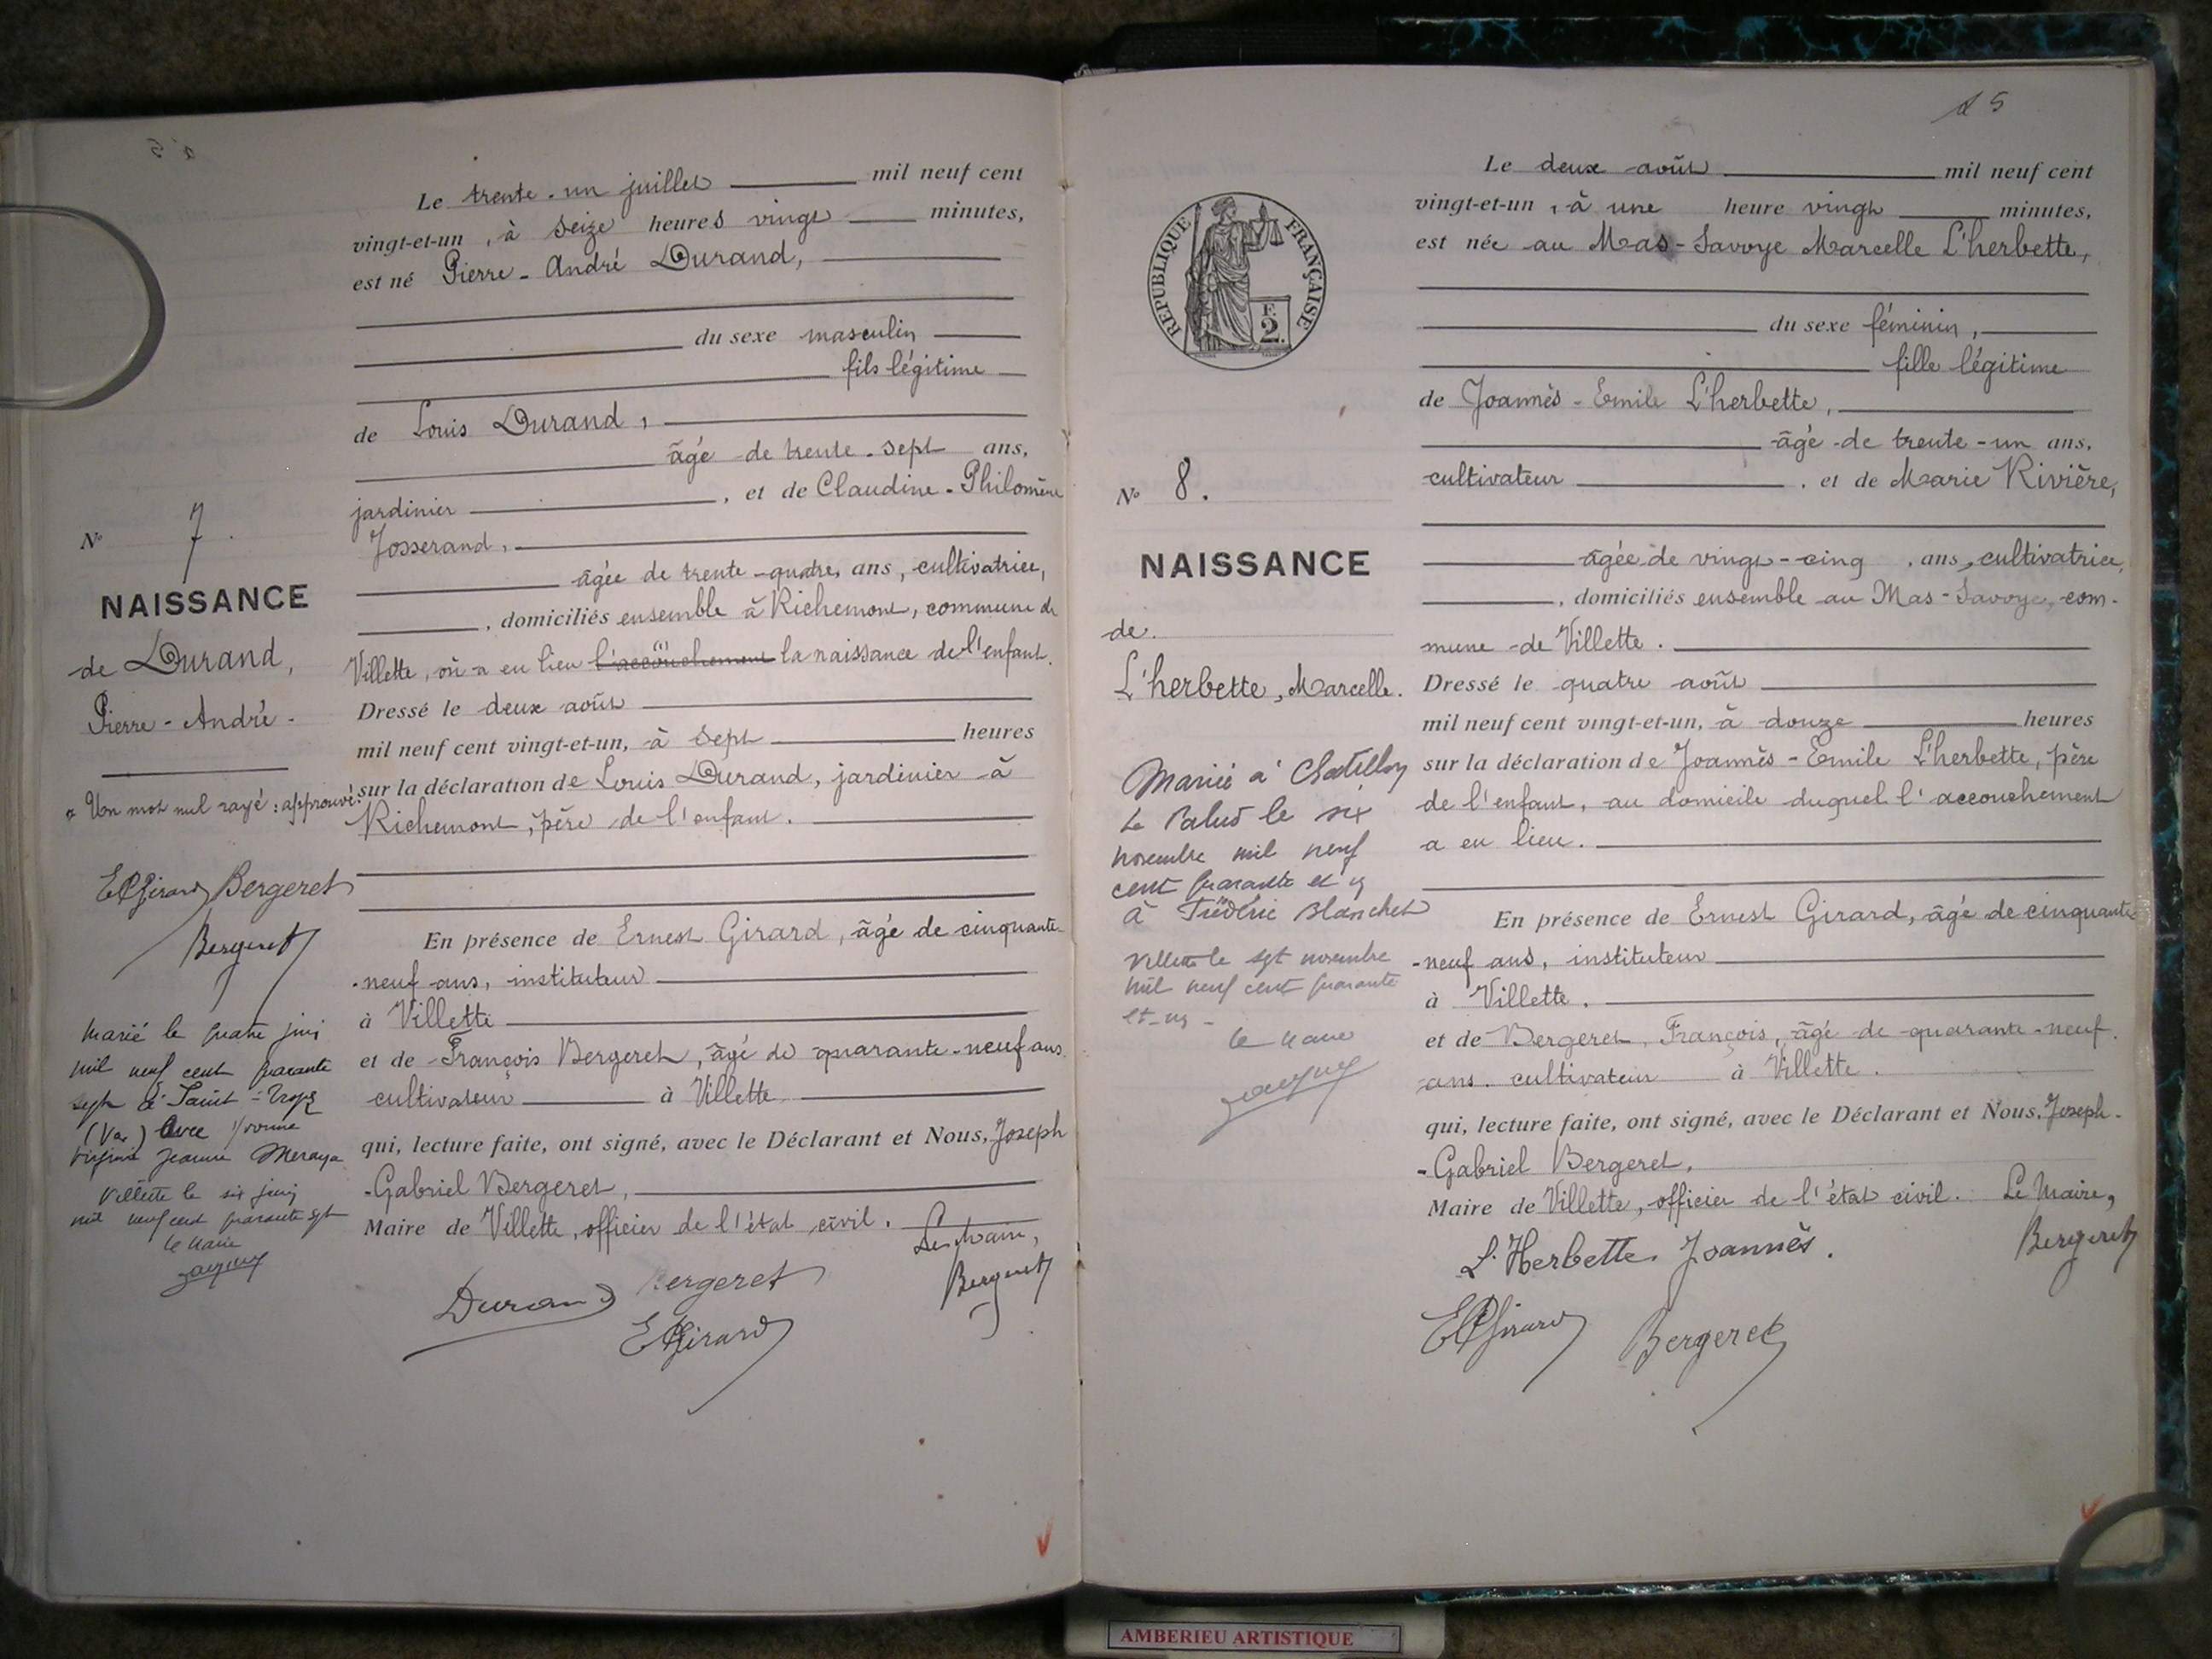 Le trente-un juillet mil neuf cent
vingt-et-un, à seize heures vingt minutes,
est né Pierre-André Durand,
du sexe masculin
fils légitime
de Louis Durand,
âgé de trente-sept ans,
jardinier, et de Claudine-Philomène
Josserand,
âgée de trente-quatre, ans, cultivatrice,
, domiciliés ensemble à Richemont, commune de
Villette, où a eu lieu l'accouchement la naissance de l'enfant.
Dressé le deux août
mil neuf cent vingt-et-un, à sept heures
sur la déclaration de Louis Durand, jardinier à
Richemont, père de l'enfant.
En présence de Ernest Girard, âgé de cinquante-
-neuf ans, instituteur
à Villette
et de François Bergeret, âgé de quarante-neuf ans
cultivateur à Villette
qui, lecture faite, ont signé, avec le Déclarant et Nous, Joseph
-Gabriel Bergeret,
Maire de Villette, officier de l'état civil. Le Maire,
Durand Bergeret Bergeret
EGirard
No 7.
NAISSANCE
de Durand,
Pierre-André-
Un mot nul rayé : approuvé.
EGirard Bergeret
Bergeret
Marié le quatre juin
mil neuf cent quarante
sept à Saint-Tropez
(Var) avec Yvonne
Jeanne
Villette le six juin
mil neuf cent quarante sept
le Maire
25
REPUBLIQUE FRANÇAISE
F.
2.
No 8.
NAISSANCE
de
L'herbette, Marcelle.
Mariée à Chatillon
la Palud le six
novembre mil neuf
cent quarante et un
à Frédéric Blanchet
Villette le sept novembre
mil neuf cent quarante
et-un-
le Maire
Le deux août mil neuf cent
vingt-et-un, à une heure vingt minutes,
est née au Mas-Savoye Marcelle L'herbette,
du sexe féminin,
fille légitime
de Joannès-Emile L'herbette,
âgé de trente-un ans,
cultivateur, et de Marie Rivière,
âgée de vingt-cinq, ans, cultivatrice,
, domiciliés ensemble au Mas-Savoye, com-
mune de Villette.
Dressé le quatre août
mil neuf cent vingt-et-un, à douze heures
sur la déclaration de Joannès-Emile L'herbette, père
de l'enfant, au domicile duquel l'accouchement
a eu lieu.
En présence de Ernest Girard, âgé de cinquante-
-neuf ans, instituteur
à Villette.
et de Bergeret, François, âgé de quarante-neuf
ans. cultivateur à Villette.
qui, lecture faite, ont signé, avec le Déclarant et Nous, Joseph-
-Gabriel Bergeret,
Maire de Villette, officier de l'état civil. Le Maire,
L'Herbette Joannès. Bergeret
EGirard Bergeret
AMBERIEU ARTISTIQUE